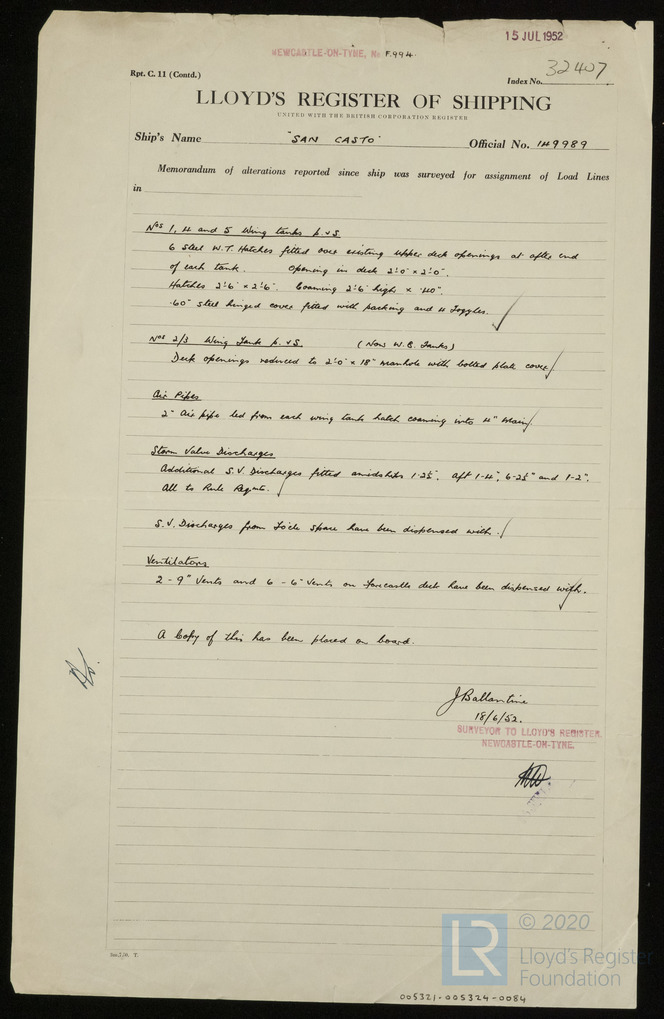 15 JUL 1952
NEWCASTLE-ON-TYNE, No F.994.
Rpt. C. 11 (Contd.)
Index No. 32407
LLOYD'S REGISTER OF SHIPPING
UNITED WITH THE BRITISH CORPORATION REGISTER
Ship's Name "SAN CASTO" Official No. 149989
Memorandum of alterations reported since ship was surveyed for assignment of Load Lines
in
Nos 1, 4 and 5 Wing tanks p. & S.
6 Steel W.T. Hatches fitted over existing upper deck openings at after end
of each tank. Opening in deck 2'.0" x 2'.0".
Hatches 2'.6" x 2'.6". Coaming 2'.6" high x .40".
.60" steel hinged cover fitted with packing and 4 Toggles.
Nos 2/3 Wing Tanks p. & S. (Now W.B. Tanks)
Deck openings reduced to 2'.0" x 18" manhole with bolted plate cover
Air Pipes
2" Air pipe led from each wing tank hatch coaming into 4" main
Storm Valve Discharges
Additional S.V. Discharges fitted amidships 1-2½", aft 1-4", 6-2½" and 1-2".
All to Rule Reqmts.
S.V. Discharges from Fo'cle space have been dispensed with.
Ventilators.
2 - 9" Vents and 6 - 6" Vents on forecastle deck have been dispensed with.
A Copy of this has been placed on board.
J Ballantine
18/6/52.
SURVEYOR TO LLOYD'S REGISTER.
NEWCASTLE-ON-TYNE.
© 2020
LR
Lloyd's Register
Foundation
005321-005324-0084